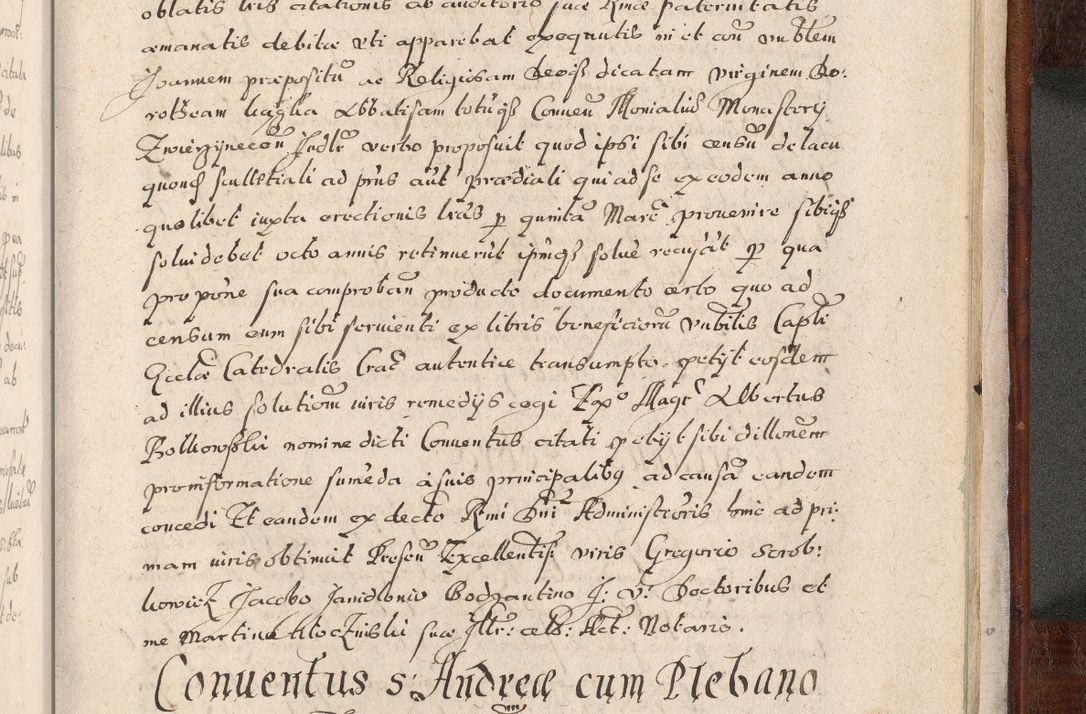 oblatis lris citationis ab auditorio suæ Rmæ paternitatis
æmanatis debitæ uti apparebat exequutis in et coñ vnblem
Joannem præpositũ ac Religiosam Deoq́ dicatam virginem Do:
rotheam Abbatisam totuq́ Conuen̄ Monialiũ Monastery
Zwierzynecen̄ Judłr verbo proposuit quod ipsi sibi censũ de lacu
quond́ ad pr̃ns aũt prædiali qui ad se ex eodem anno
quolibet iuxta erectionis lrãs p quinta Marc̃ prouenire sibiq́
solui debet octo annis retinuerũt ipmq́ solue recusãt p qua
propone sua comproban̄ producto documento certo quo ad
censum eum sibi seruienti ex libris beneficiorũ Vnblis Capłi
Ecclæ Catedralis Crac̃ autentice transumpto. petÿt eosdem
ad illius solutionẽ iuris remedijs cogi Exo Magr̃ Albertus
Bolkowskii nomine dicti Conuentus citati petÿt sibi dillonem
pro informatione sumẽda à suis principalibq ad causã eandem
concedi Et eandem ex decto Rmi Dni Administroris hinc ad pri:
mam iuris obtinuit Presen̄ Excellentis̃ viris Gregorio Scrob:
kowicz Jacobo Janidlouio Bodzantino J: V: Doctoribus et
me Martino suæ Illr̃: cels: Act: Notario.
Conuentus S: Andreæ cum Plebano